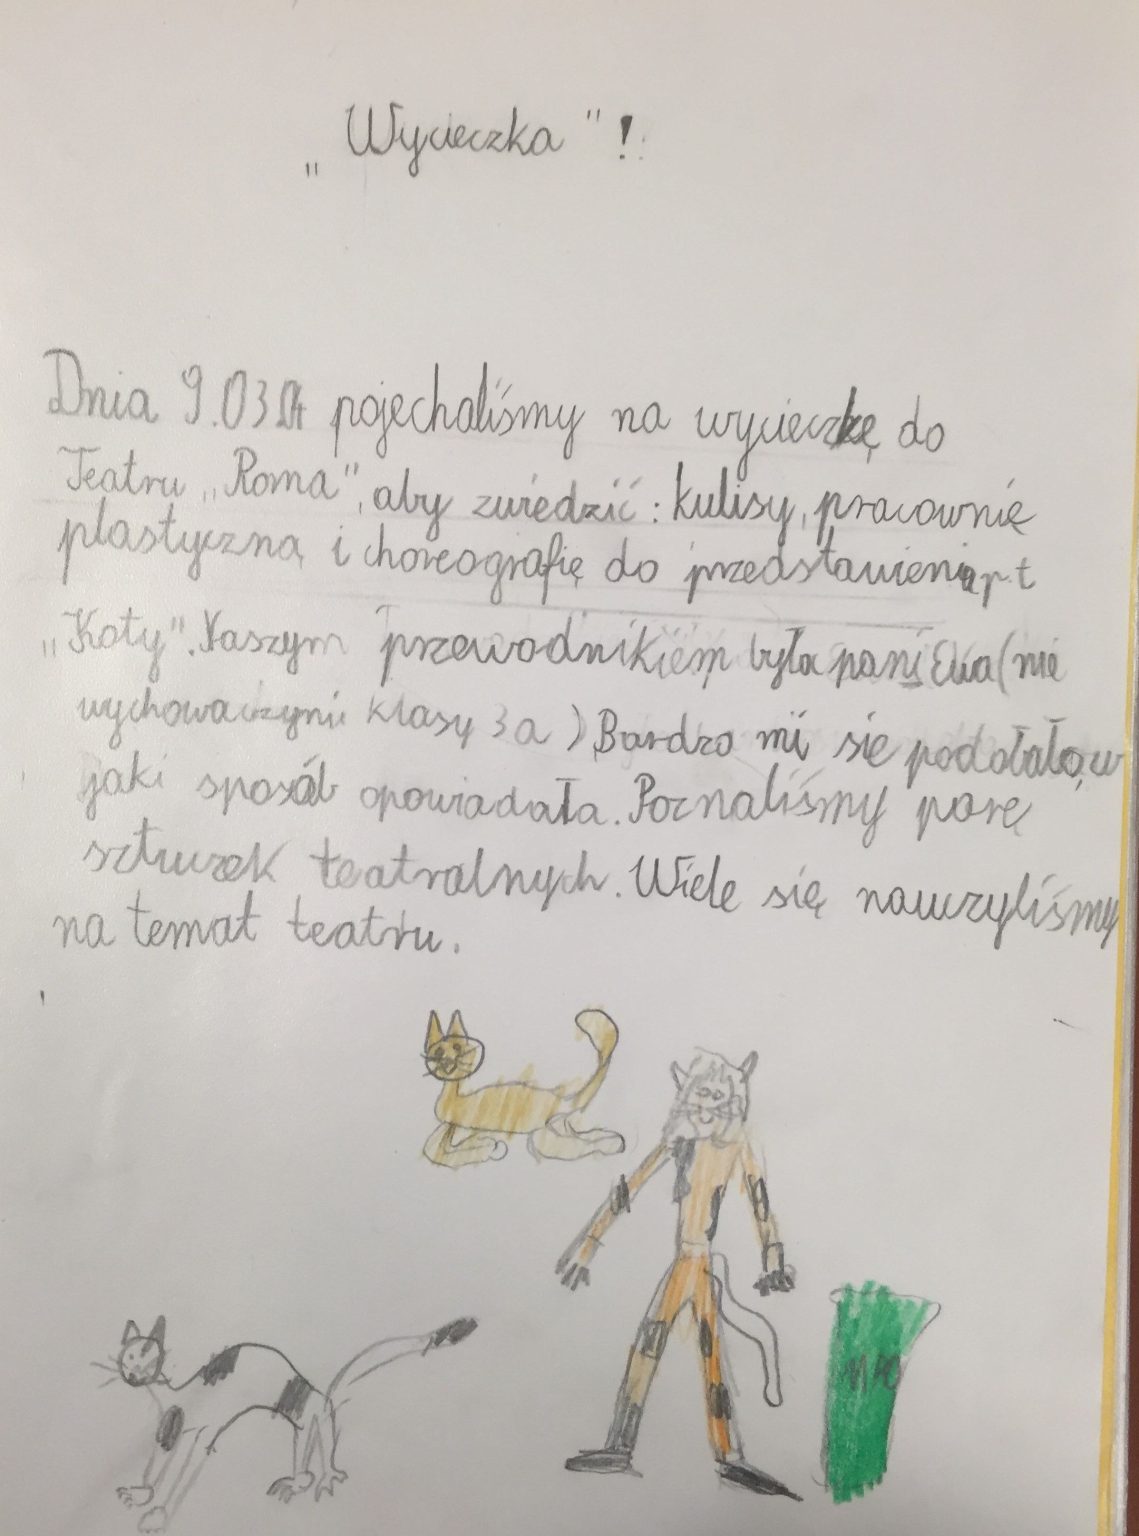 „Wycieczka"!
Dnia 9.03.04 pojechaliśmy na wycieczkę do
Teatru „Roma", aby zwiedzić: kulisy, pracownię
plastyczną i choreografię do przedstawienia p.t
„Koty". Naszym przewodnikiem była pani Ewa (nie
wychowaczyni klasy 3a). Bardzo mi się podobało, w
jaki sposób opowiadała. Poznaliśmy parę
sztuczek teatralnych. Wiele się nauczyliśmy
na temat teatru.